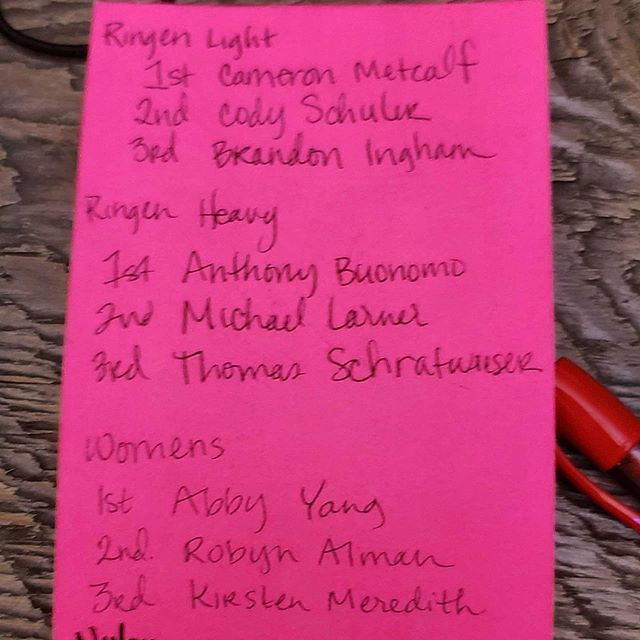 Ringen Light
1st Cameron Metcalf
2nd Cody Schuler
3rd Brandon Ingham
Ringen Heavy
1st Anthony Buonomo
2nd Michael Larner
3rd Thomas
Womens
1st Abby Yang
2nd. Robyn Alman
3rd Kirsten Meredith